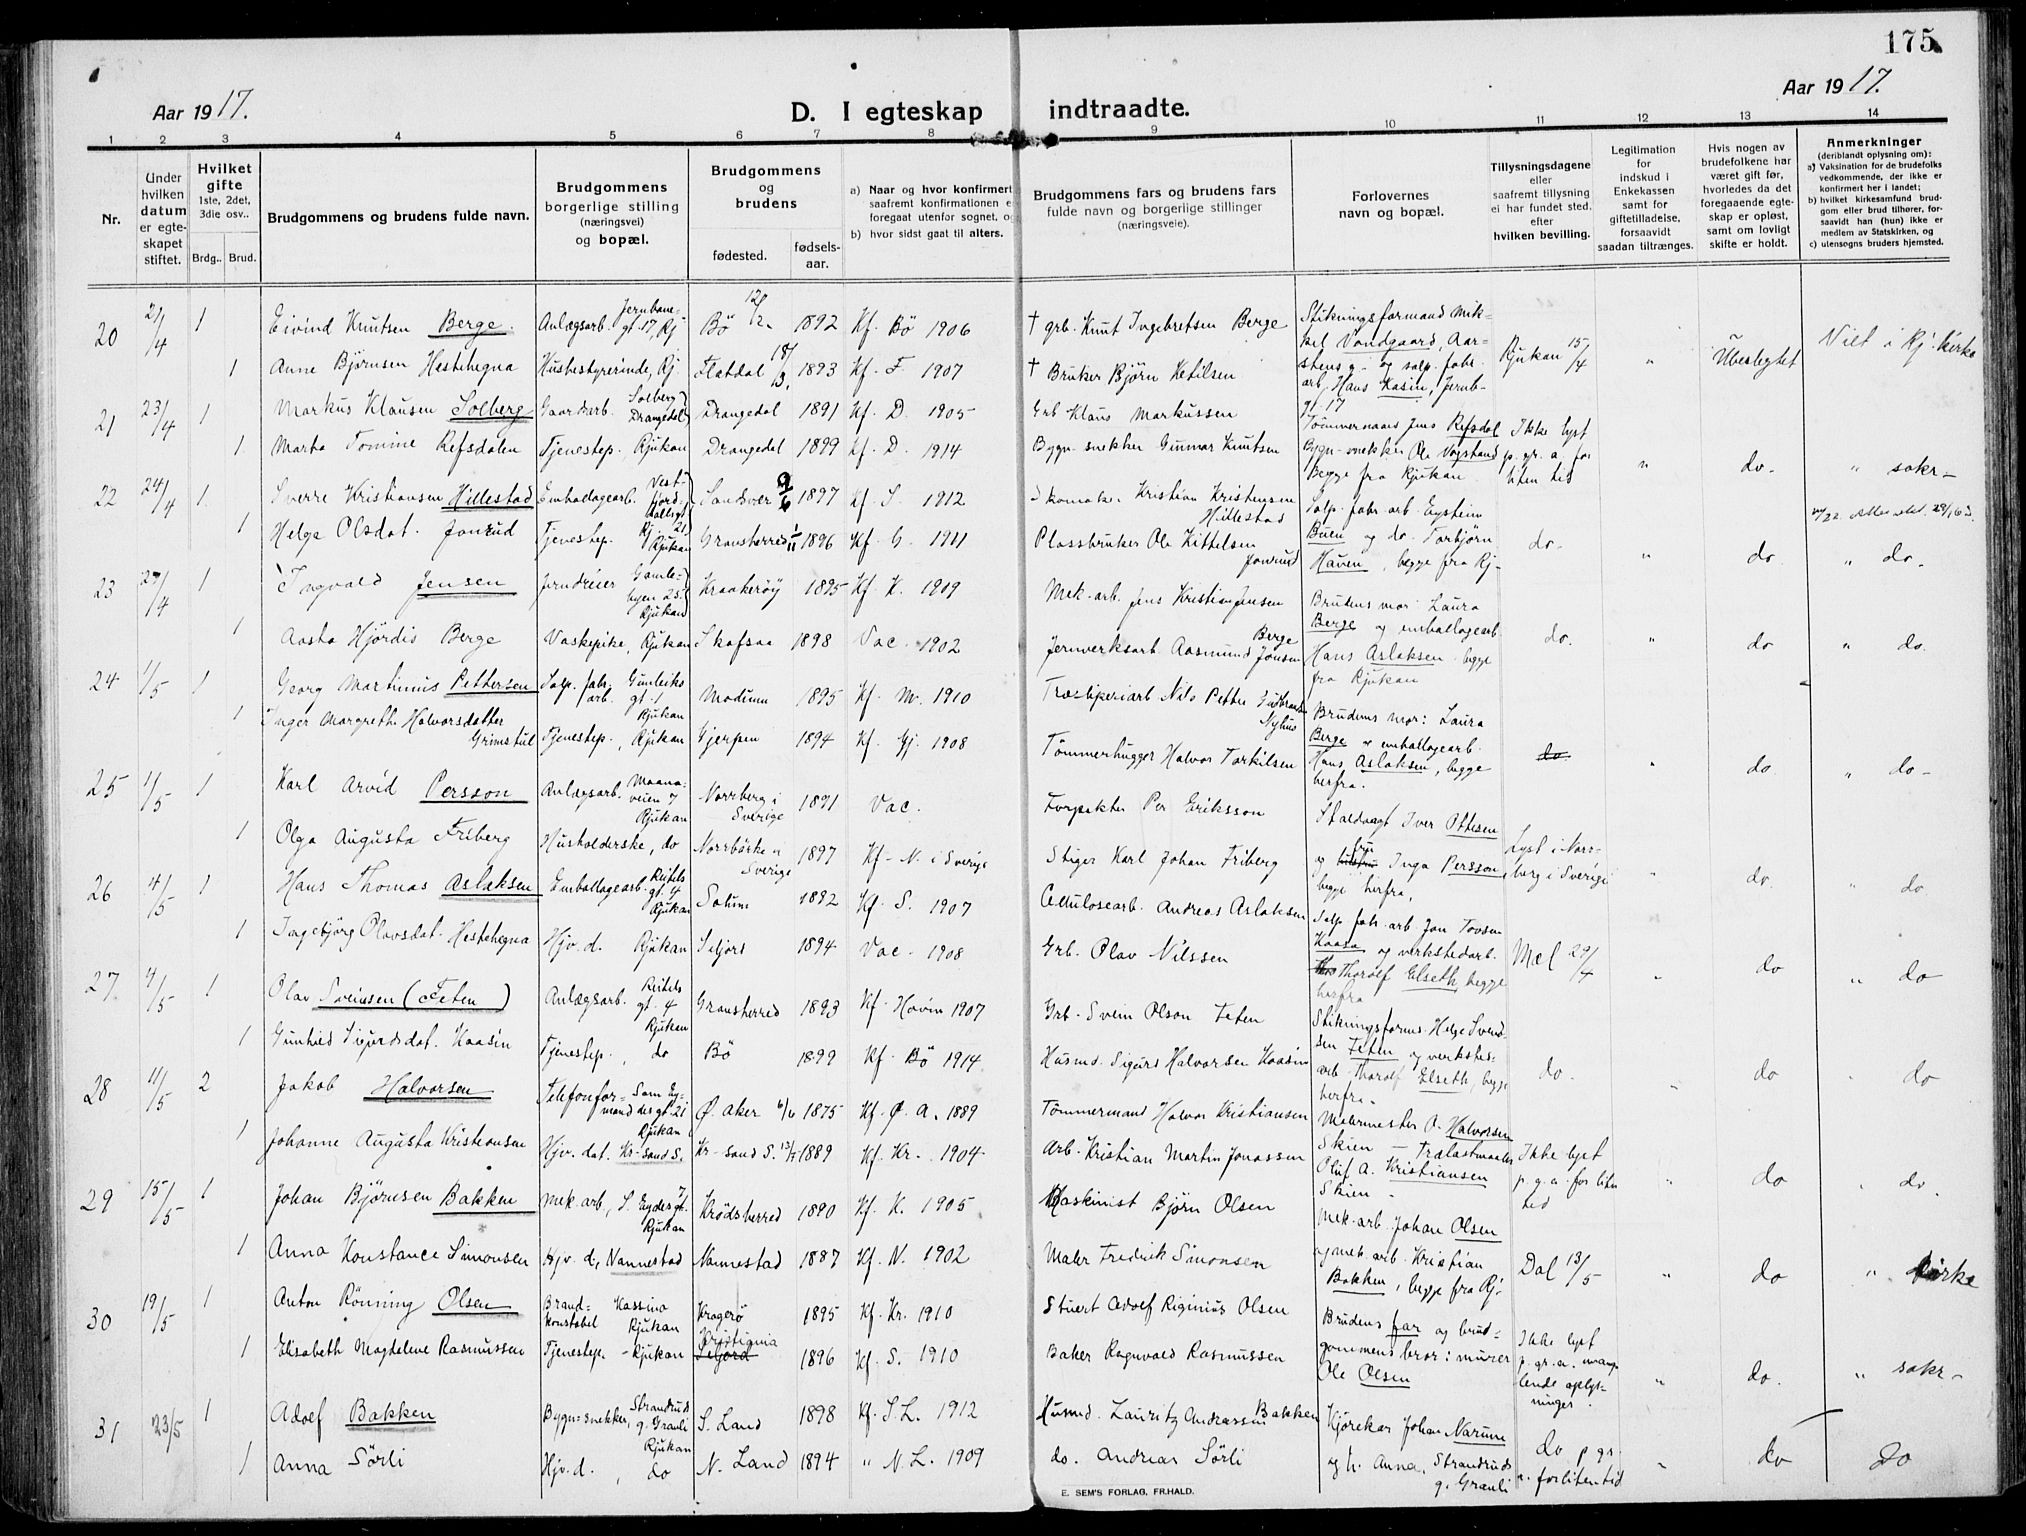 175
Aar 1917.
D. I egteskap indtraadte.
Aar 1917.
1 2 3 4 5 6 7 8 9 10 11 12 13 14
Nr.
Under hvilken datum er egteskapet stiftet.
Hvilket gifte 1ste, 2det, 3die osv..
Brdg.. Brud.
Brudgommens og brudens fulde navn.
Brudgommens borgerlige stilling (næringsvei) og bopæl.
Brudgommens og brudens
fødested.
fødselsaar.
a) Naar og hvor konfirmert
saafremt konfirmationen e
foregaat utenfor sognet, og
b) hvor sidst gaat til alters.
Brudgommens fars og brudens fars
fulde navn og borgerlige stillinger
(næringsveie).
Forlovernes
navn og bopæl.
Tillysningsdagene
eller
saafremt tillysning
ei har fundet sted,
efter
hvilken bevilling.
Legitimation
for
indskud i
Enkekassen
samt for
giftetilladelse,
forsaavidt
saadan tiltrænges.
Hvis nogen av
brudefolkene har
været gift før,
hvorledes da det
foregaaende egte-
skap er opløst,
samt om lovligt
skifte er holdt.
Anmerkninger
(deriblandt oplysning om):
a) Vaksination for de brudefolks
vedkommende, der ikke er
konfirmert her i landet;
b) hvilket kirkesamfund brud-
gom eller brud tilhører, for-
saavidt han (hun) ikke er
medlem av Statskirken, og
c) utensogns bruders hjemsted.
20 21/4 1 Eivind Knutsen Berge. Anlægsarb. Jernbanegt. 17, Rj Bö 12/12 1892 Kf. Bö 1906 † grb. Knut Ingebretsen Berge Stikningsformand Mikkel Vandgaard, Aarstens g. og salp. fabr. arb. Hans Kasin, Jernb-gt. 17 Rjukan 15/4 " Ubeslegtet Viet i Rj. kirke
1 Anne Björnsen Hestehegna Husbestyrerinde, Rj. Flatdal 18/3 1893 Kf. F. 1907 † Bruker Björn Ketilsen
21 23/4 1 Markus Klausen Solberg Gaardsarb. Solberg Drangedal Drangedal 1891 Kf. D. 1905 Grb Klaus Markussen Tömmermand Jens Refsdal Bygn-snekker Ole Vogstand Begge fra Rjukan. Ikke lyst p. gr. a. for liten tid " do. " sakr-
1 Marta Tomine Refsdalen Tjenestep. Rjukan Drangedal 1899 Kf. D. 1914 Bygn-snekker Gunnar Knutsen
22 24/4 1. Sverre Kristiansen Hillestad Emballagearb. Sandsver 9/6 1897 Kf. S 1912 Skomaker Kristian Kristensen Hillestad Salp. fabr. arb. Eystein Buen og do. Torbjörn Haven, begge fra Rj- do. " do " do.
1 Helga Olsdat. Jonrud Tjenestep. Rjukan Gransherred 1/11 1896 Kf. G. 1911 Plassbruker Ole Kittelsen Jonsrud
23 27/4 1 Ingvald Jensen Jerndreier Gamlebyen 25 Rjukan Kraakeröy 1895 Kf. K. 1909 Mek-arb. Jens Kristian Jensen Brudens mor Laura Berge og emballagearb. Hans Aslaksen begge fra Rjukan do. " do " do.
1 Aasta Hjördis Berge Vaskepike, Rjukan Skafsaa 1898 Vac. 1902 Jernverksarb Aasmund Jonsen Berge
24 1/5 1 Georg Martinius Pettersen Salp. fabr. arb. Gunleiks gt. 1 Rjukan Modum 1895 Kf. M. 1910 Træsliperiarb Nils Petter Gudbrands Nyhus Brudens mor: Laura Berge og emballagearb. Hans Aslaksen, begge herfra. do. " do " do-
1 Inger Margrethe Halvorsdatter Grimstul Tjenestep., Rjukan Gjerpen 1894 Kf. Gj. 1908 Tömmerhugger Halvor Torkilsen
25 1/5 1 Karl Arvid Persson Anlægsarb. Maanaveien 7 Rjukan Norrberg i Sverige 1891 Vac. Per Eriksson Staldvagt Iver Ottesen og fru Inga Persson, begge herfra. Lyst i Norrberg i Sverige " do. " do
1 Olga Augusta Friberg Husholderske, do Norrbärke Sverige 1897 Kf-N. i Sverige Stiger Karl Johan Friberg
26 4/5 1 Hans Thomas Aslaksen Emballagearb. gt. 4 Rjukan Solum 1892 Kf. S. 1907 Cellulosearb. Andreas Aslaksen Salp. fabr. arb Jon Tovsen Kaasa og verkstedarb. Thorolf Elseth, begge herfra Mæl 29/4 " do " do
1 Ingebjörg Olavsdat. Hestehegna Hjv. d. Rjukan Seljord 1894 Vac. 1908 Grb. Olav Nilssen
27 4/5 1 Olav Sveinsen (Feten) Anlægsarb. gt. 4 Rjukan Gransherred 1893 Kf. Hovin 1907 Grb. Svein Olson Feten Stikningsform. Helge Svendsen Feten og verksted-arb Thorolf Elseth, begge herfra. do. do do
1 Gunhild Sigurdsdat. Kaasin Tjenestep., do Bö 1899 Kf. Bö 1914 Husmd. Sigurd Halvorsen Kaasin
28 11/5 2 Jakob Halvorsen Telefonformand Sam Eydes gt. 21 Rjukan Ö. Aker 6/6 1875 Kf. Ö. A. 1889 Tömmermand Halvor Kristiansen Malermester O. Halvorsen Skien - Trælastmaaler Oluf A. Kristiansen Skien. Ikke lyst p. g. a. for liten tid " do do.
1 Johanne Augusta Kristiansen Hjv. dat. Kr-sand S. Kr-sand S. 1889 Kf. Kr. 1904 Arb. Kristian Martin Jonassen
29 15/5 1 Johan Björnsen Bakken Mek-arb, S. Eydes gt. 7 Rjukan Krødsherred 1890 Kf. K. 1905 Maskinist Björn Olsen Mek-arb. Johan Olsen og mek. arb. Kristian Bakken, begge fra Rj. Dal 13/5 " do " kirke
1 Anna Konstance Simonsen Hjv. d, Nannestad Nannestad 1887 Kf. N. 1902 Maler Fredrik Simonsen
30 19/5 1 Anton Rönning Olsen Brandkonstabel Kassino Rjukan Kragerö 1895 Kf. Kr. 1910 Stuert Adolf Riginius Olsen Brudens far og brudgommens bror: murer Ole Olsen Ikke lyst p. gr. a. manglende oplysninger. " do. " sakr-
1 Elisabeth Magdelene Rasmussen Tjenestep. - Rjukan Kristiania Seljord 1896 Kf. S. 1910 Baker Ragnvald Rasmussen
31 23/5 1 Adolf Bakken Bygn-snekker, Strandrud g. Granli Rjukan S. Land 1898 Kf. S. L. 1912 Husmd. Lauritz Andrassen Bakken Kjörekar Johan Narum og h. Anna, Strandruds g. Granli do p gr. a. for liten tid " do do
1 Anna Sörli Hjv. d., do N. Land 1894 " N. L. 1909 do. Andreas Sörli
E. SEM'S FORLAG, FR.HALD.